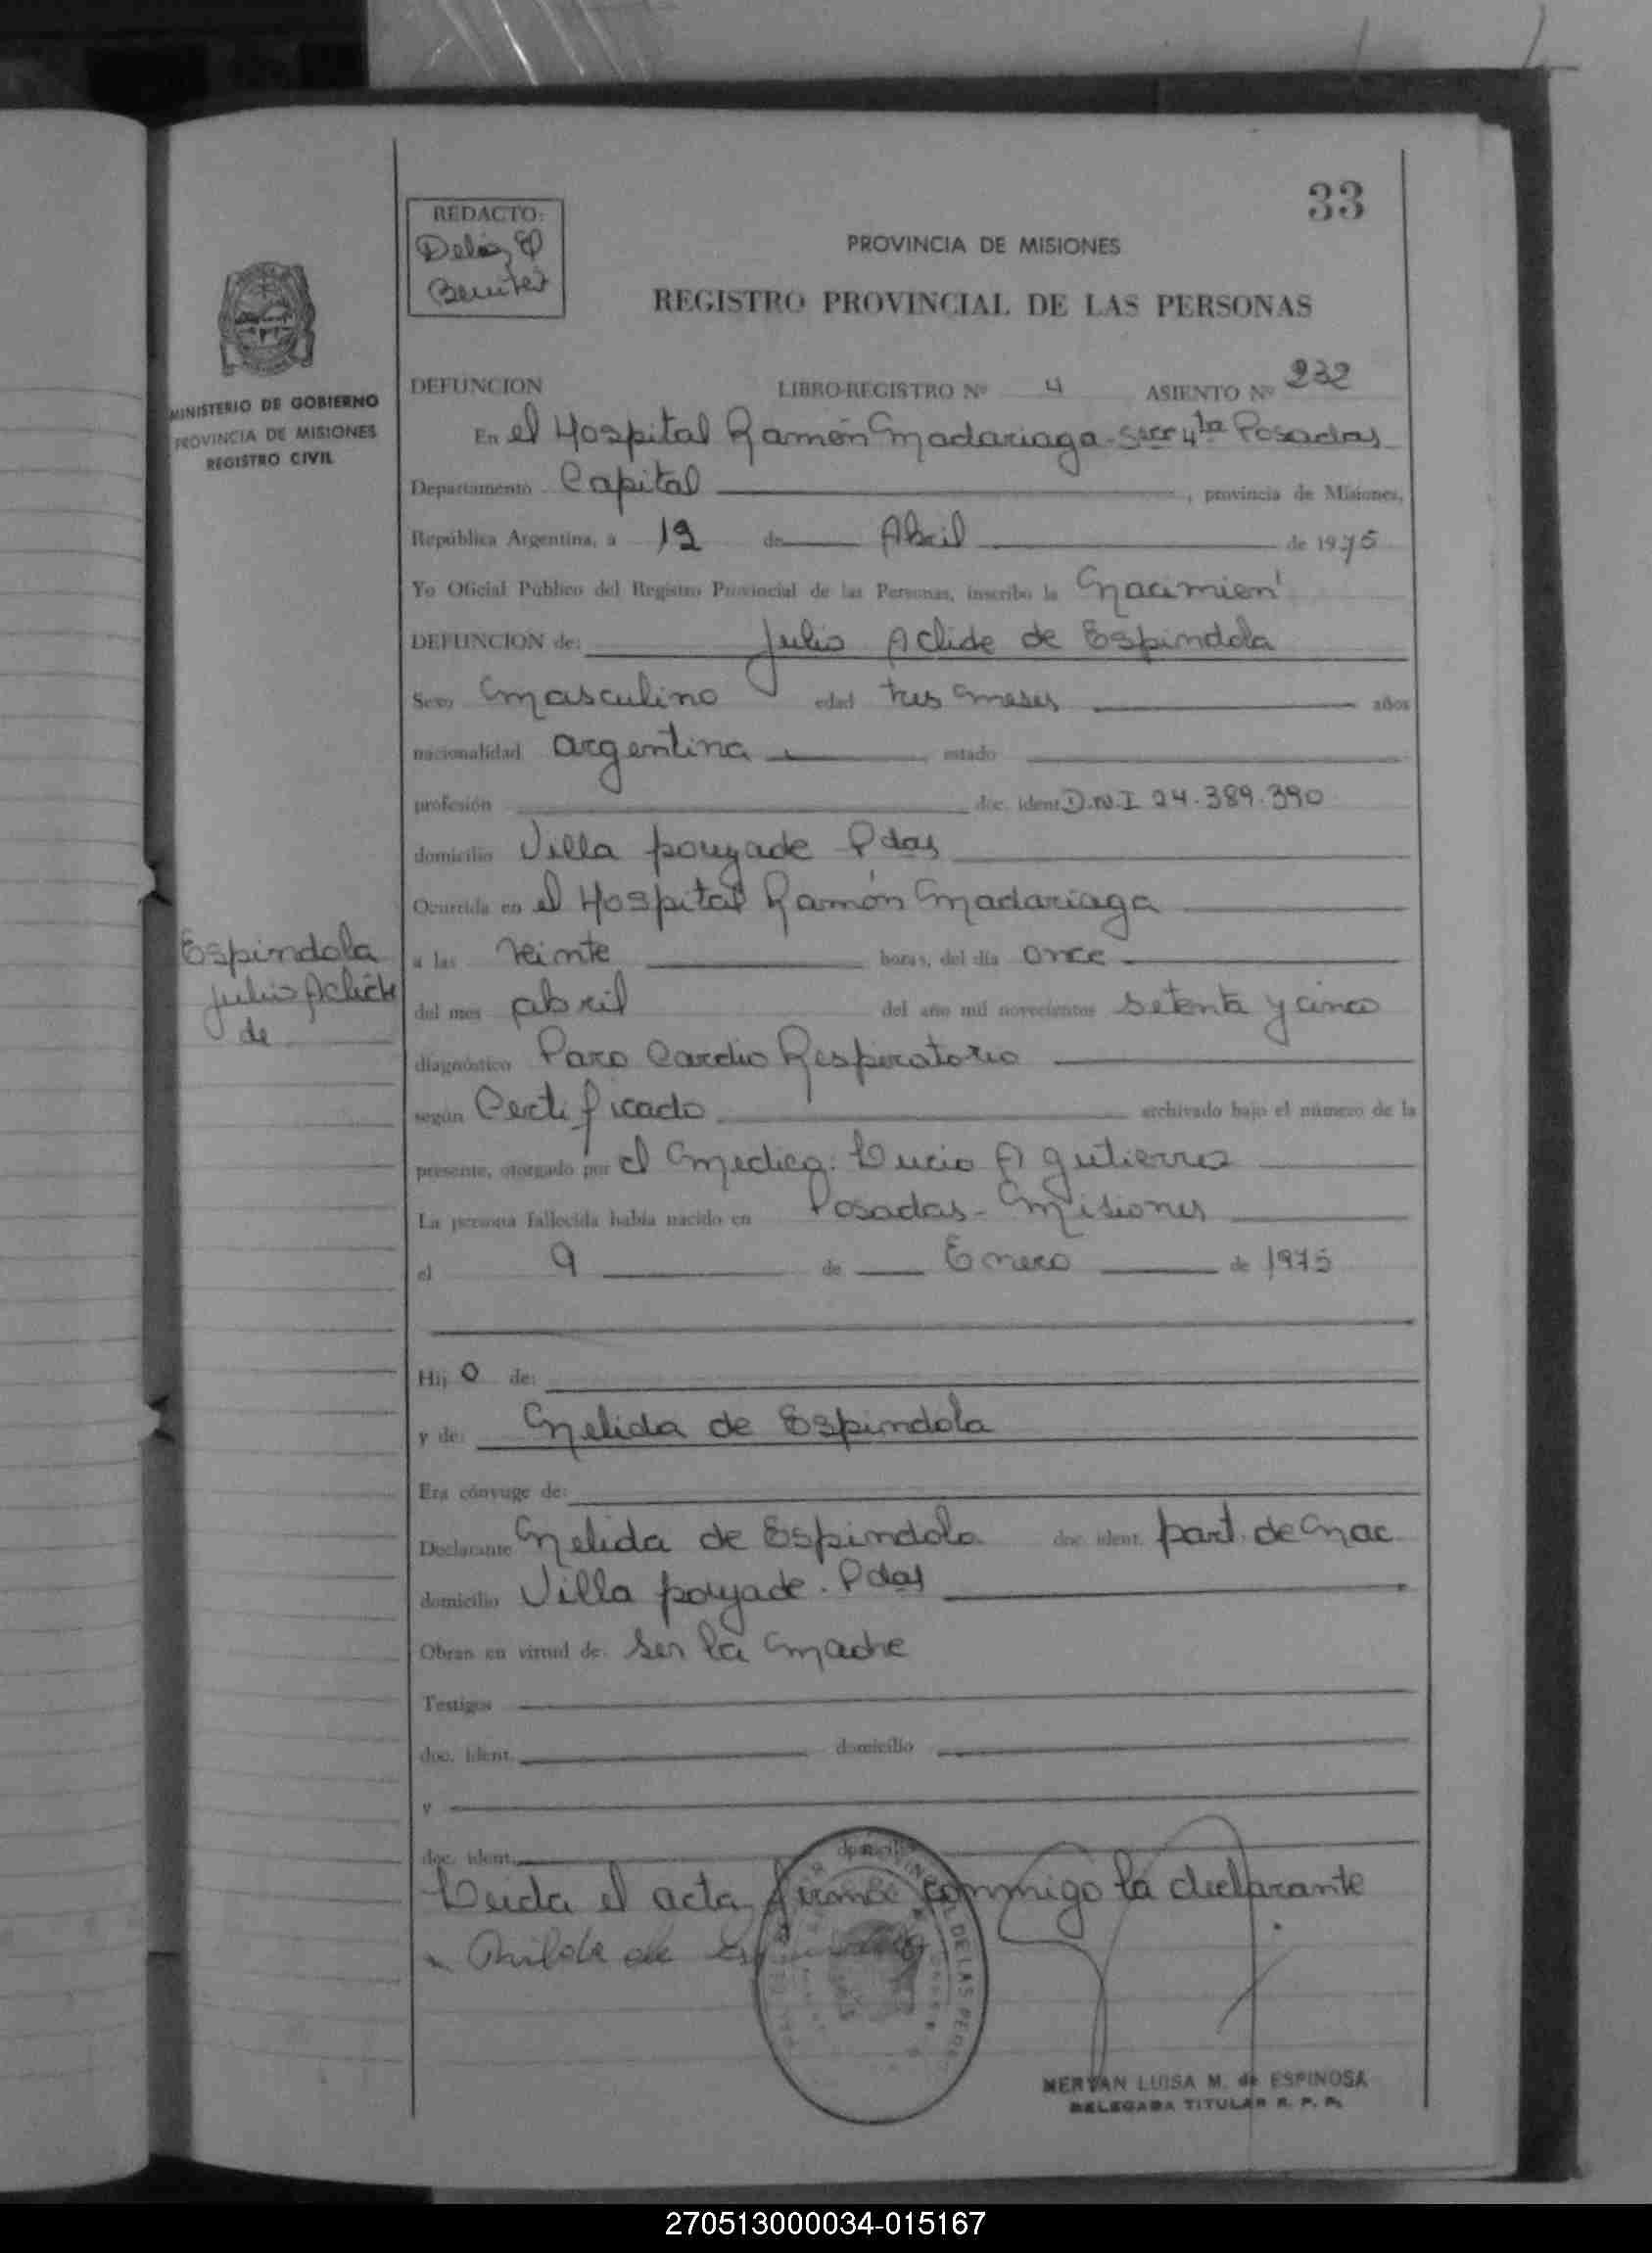 33
REDACTO:
Benitez
PROVINCIA DE MISIONES
REGISTRO PROVINCIAL DE LAS PERSONAS
MINISTERIO DE GOBIERNO
PROVINCIA DE MISIONES
REGISTRO CIVIL
DEFUNCION LIBRO-REGISTRO Nº 4 ASIENTO Nº 232
En el Hospital Ramón Madariaga - Secc 4ta Posadas
Departamento Capital, provincia de Misiones,
República Argentina, a 12 de Abril de 1975
Yo Oficial Público del Registro Provincial de las Personas, inscribo la Nacimien
DEFUNCION de: Julio Aclide de Espindola
Sexo masculino edad tres meses años
nacionalidad argentina estado
profesión doc. ident. D.N.I 24.389.390
domicilio Villa pouyade Pdas
Ocurrida en el Hospital Ramón Madariaga
Espindola
Julio Aclide
de
a las veinte horas, del día once
del mes abril del año mil novecientos setenta y cinco
diagnóstico Paro Cardio Respiratorio
según Certificado archivado bajo el número de la
presente, otorgado por el medico: Lucio A Gutierrez
La persona fallecida había nacido en Posadas - Misiones
el 9 de Enero de 1975
Hij o de:
y de: Nelida de Espindola
Era cónyuge de:
Declarante Nelida de Espindola doc. ident. part. de Nac
domicilio Villa poujade. Pdas
Obran en virtud de: ser la madre
Testigos
doc. ident. domicilio
y
doc. ident. domicilio
Leida el acta, firma conmigo la declarante
de
DE LAS PERS
MERYAN LUISA M. de ESPINOSA
DELEGADA TITULAR R. P. P.
270513000034-015167